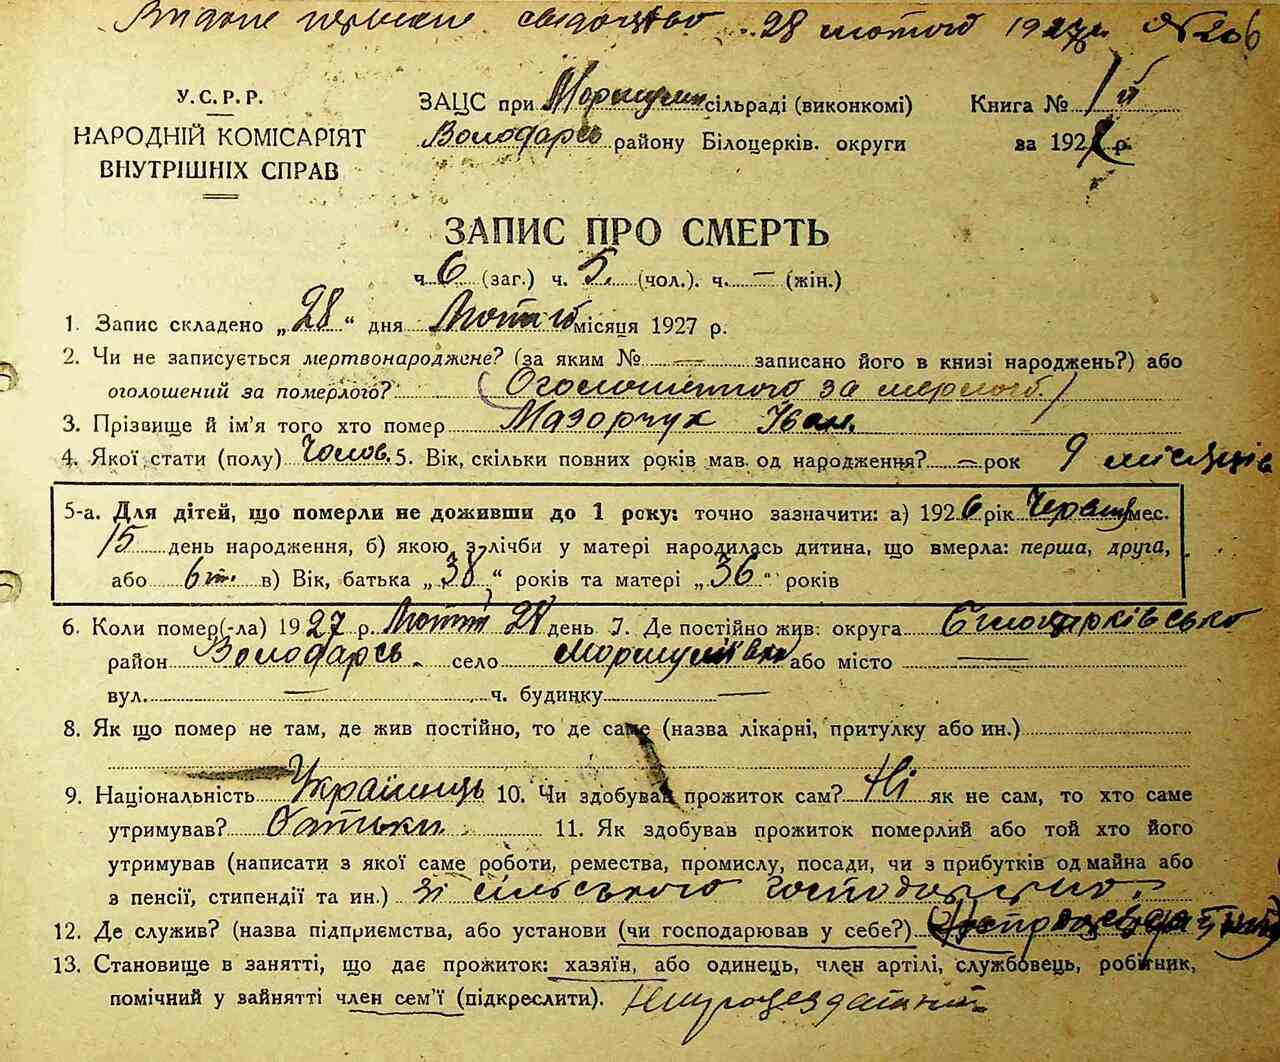 Видане первісне свідоцтво 28 лютого 1927 р. № 206
У.С.Р.Р.
НАРОДНІЙ КОМІСАРІЯТ
ВНУТРІШНІХ СПРАВ
ЗАЦС при сільраді (виконкомі)
Володарсь району Білоцерків. округи
Книга № 1
за 192 р.
ЗАПИС ПРО СМЕРТЬ
ч. 6 (заг.) ч. 5. (чол.). ч. — (жін.)
1. Запис складено „28“ дня Лютого місяця 1927 р.
2. Чи не записується мертвонароджене? (за яким № — записано його в книзі народжень?) або
оголошений за померлого? (Оголошеного за мерлого.)
3. Прізвище й ім'я того хто помер Мазорчук Іван.
4. Якої стати (полу) Чолов. 5. Вік, скільки повних років мав од народження? — рок 9 місяців
5-а. Для дітей, що померли не доживши до 1 року: точно зазначити: а) 1926 рік Червня мес.
15 день народження, б) якою з лічби у матері народилась дитина, що вмерла: перша, друга,
або 6 т. в) Вік, батька „38“ років та матері „36“ років
6. Коли помер(-ла) 1927 р. Лютня 28 день 7. Де постійно жив: округа Білоцерківсько
район Володарсь. село або місто —
вул. — ч. будинку —
8. Як що помер не там, де жив постійно, то де саме (назва лікарні, притулку або ин.)
9. Національність Українець 10. Чи здобував прожиток сам? Ні як не сам, то хто саме
утримував? Батьки 11. Як здобував прожиток померлий або той хто його
утримував (написати з якої саме роботи, ремества, промислу, посади, чи з прибутків од майна або
з пенсії, стипендії та ин.) зі сільського господарства.
12. Де служив? (назва підприємства, або установи (чи господарював у себе?)
13. Становище в занятті, що дає прожиток: хазяїн, або одинець, член артілі, службовець, робітник,
помічний у зайнятті член сем'ї (підкреслити). Непрацездатний